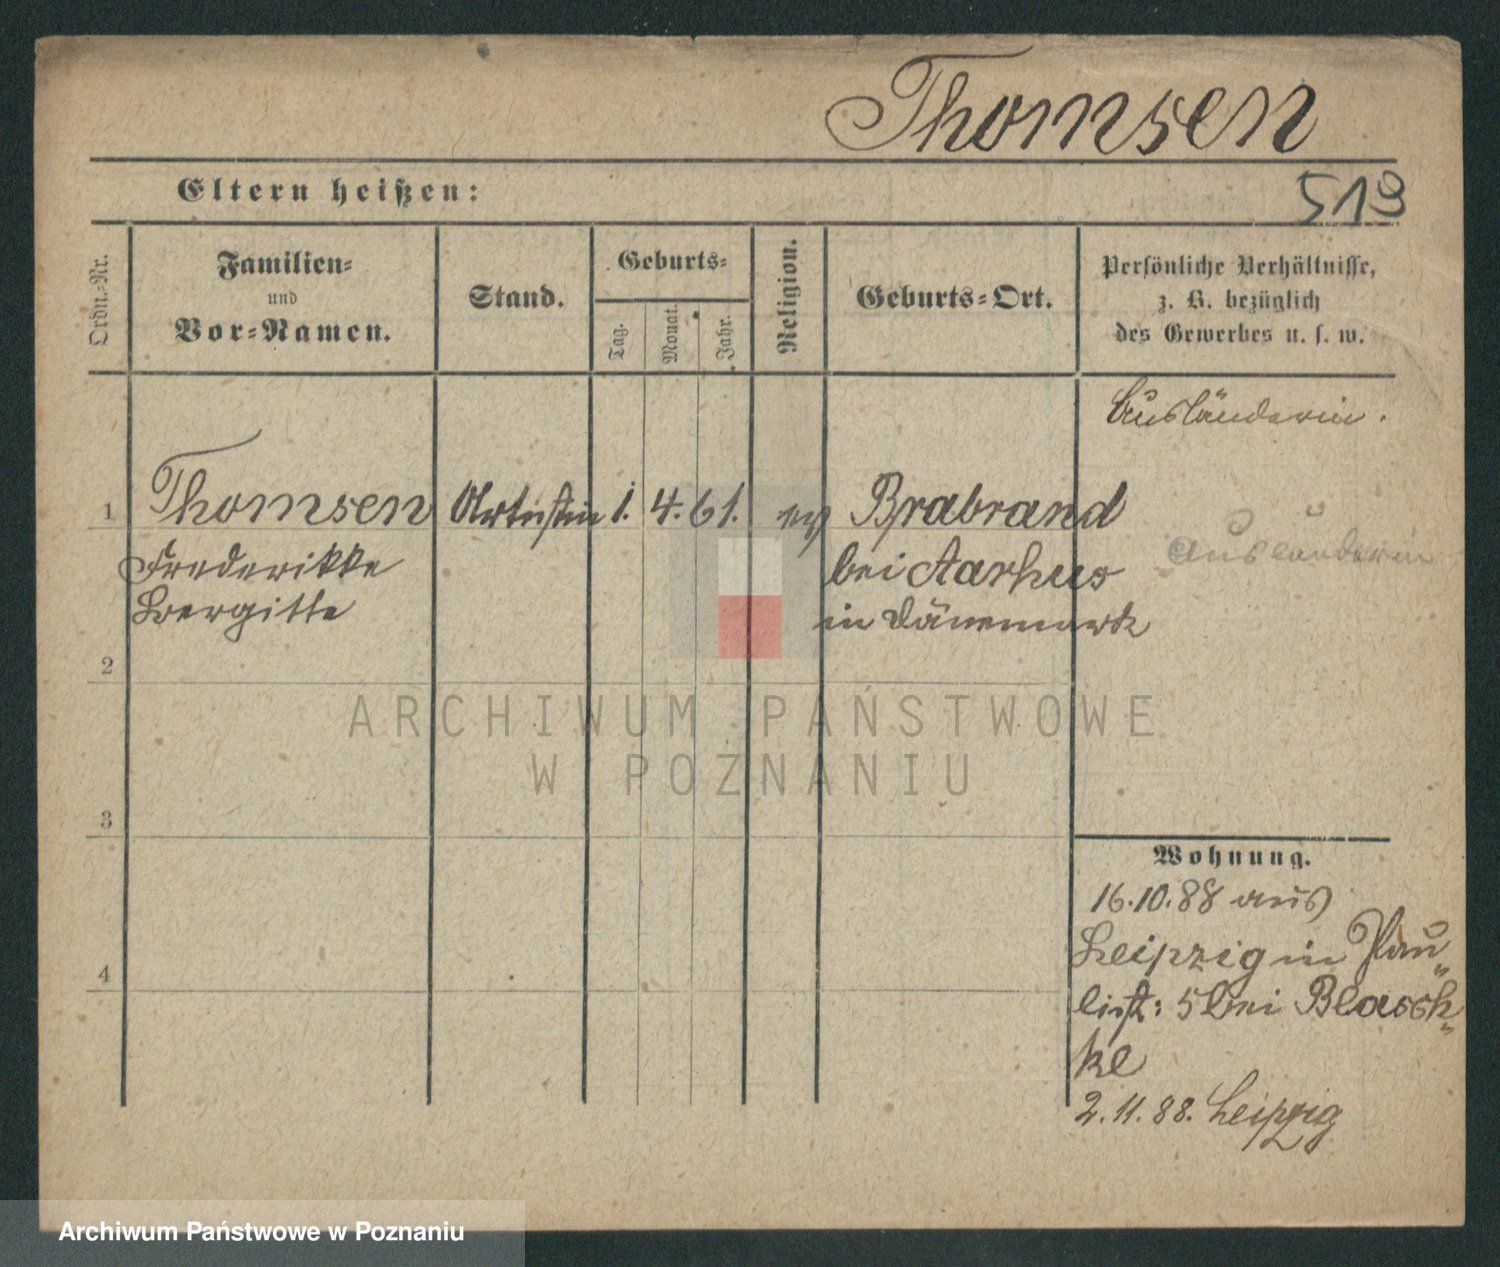 Thomsen
Eltern heißen:
519
Ordn.-Nr.
Familien-
und
Vor-Namen.
Stand.
Geburts-
Tag.
Monat.
Jahr.
Religion.
Geburts-Ort.
Persönliche Verhältnisse,
z. B. bezüglich
des Gewerbes u. s. w.
Ausländerin.
1 Thomsen Artistin 1. 4. 61. ev Brabrand
Frederikke bei Aarhus Ausländerin
Bergitte in Dänemark
2
3
4
Wohnung.
16.10.88 aus
Leipzig in Pau„
list: 5 bei Blasch„
ke
2.11.88. Leipzig
ARCHIWUM PAŃSTWOWE
W POZNANIU
Archiwum Państwowe w Poznaniu